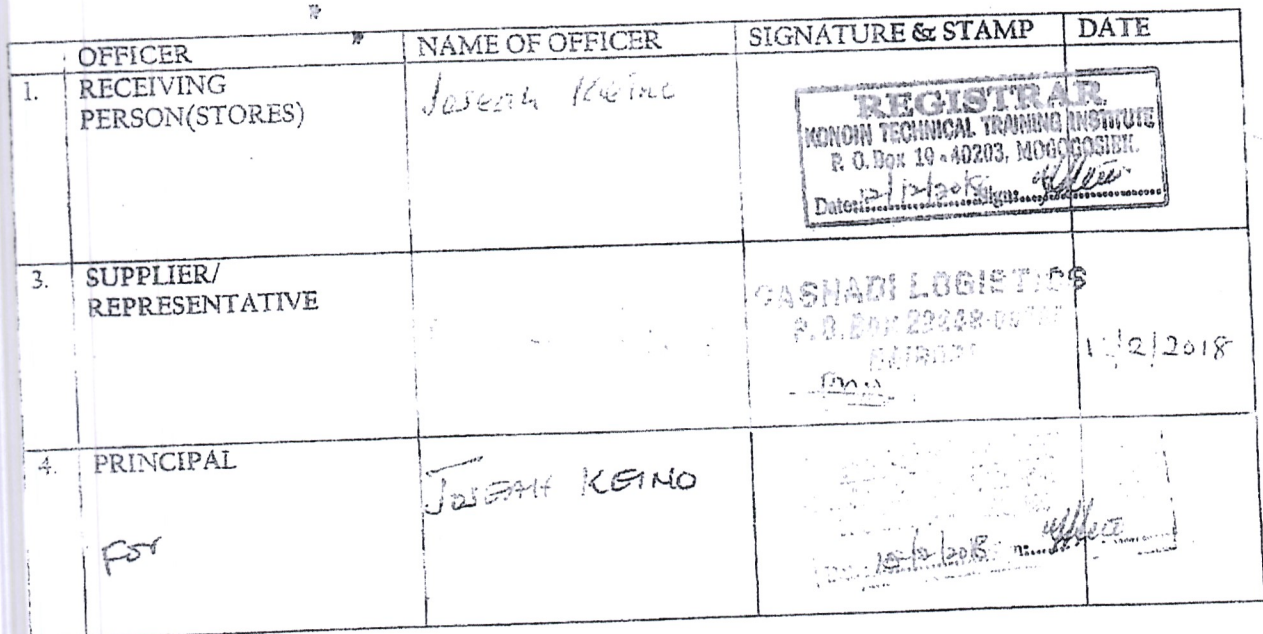 OFFICER NAME OF OFFICER SIGNATURE & STAMP DATE
1. RECEIVING PERSON(STORES) Joseph Keino
REGISTRAR
KONOIN TECHNICAL TRAINING INSTITUTE
P. O. Box 10 - 40203, MOGOGOSIEK.
Date: 12/12/2018 Sign:
3. SUPPLIER/
REPRESENTATIVE
LOGISTICS
P.O. BOX
NAIROBI
2/2018
4. PRINCIPAL JOSEPH KEINO
For